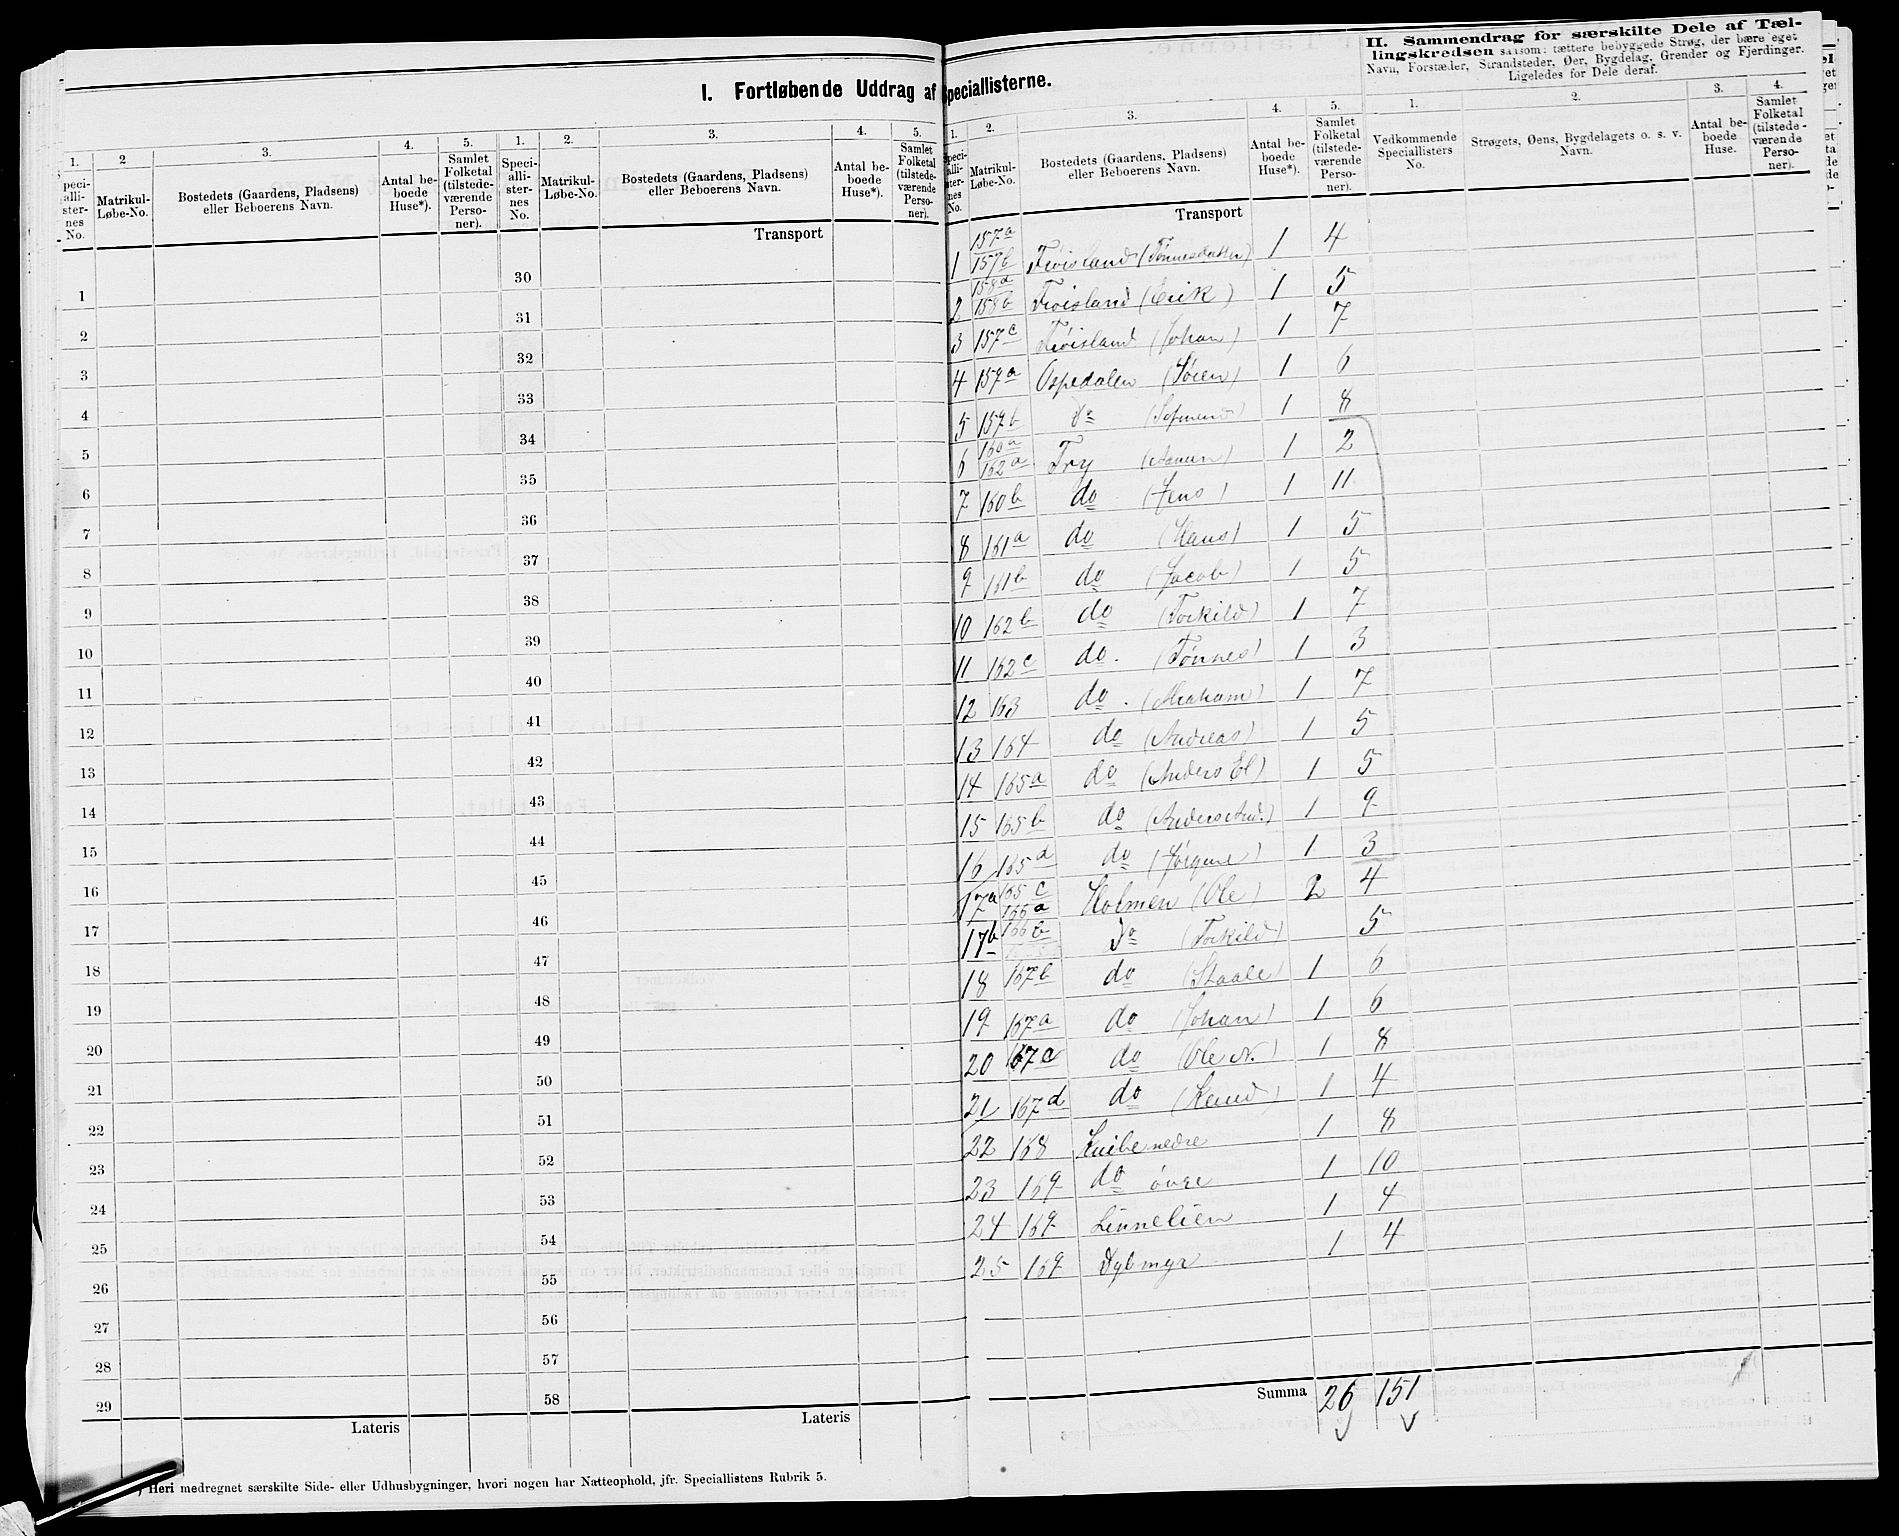 I. Fortløbende Uddrag af Speciallisterne.
II. Sammendrag for særskilte Dele af Tæl-
lingskredsen saasom: tættere bebyggede Strøg, der bære eget
Navn, Forstæder, Strandsteder, Øer, Bygdelag, Grender og Fjerdinger.
Ligeledes for Dele deraf.
1. 2 3. 4. 5. 1. 2. 3. 4. 5.
Speci-
alli-
ster-
nes
No.
Matrikul-
Løbe-No.
Bostedets (Gaardens, Pladsens)
eller Beboerens Navn.
Antal be-
boede
Huse*).
Samlet
Folketal
(tilstede-
værende
Perso-
ner).
Speci-
alli-
ster-
nes
No.
Matrikul-
Løbe-No.
Bostedets (Gaardens, Pladsens)
eller Beboerens Navn.
Antal be-
boede
Huse*).
Samlet
Folketal
(tilstede-
værende
Perso-
ner).
Transport
1 30
2 31
3 32
4 33
5 34
6 35
7 36
8 37
9 38
10 39
11 40
12 41
13 42
14 43
15 44
16 45
17 46
18 47
19 48
20 49
21 50
22 51
23 52
24 53
25 54
26 55
27 56
28 57
29 58
Lateris Lateris
*) Heri medregnet særskilte Side- eller Udhusbygninger, hvori nogen har Natteophold, jfr. Speciallistens Rubrik 5.
1. 2. 3. 4. 5. 1. 2. 3. 4.
Speci-
alli-
ster-
nes
No.
Matrikul-
Løbe-No.
Bostedets (Gaardens, Pladsens)
eller Beboerens Navn.
Antal be-
boede
Huse*).
Samlet
Folketal
(tilstede-
værende
Perso-
ner).
Vedkommende
Speciallisters
No.
Strøgets, Øens, Bygdelagets o. s. v.
Navn.
Antal be-
boede
Huse.
Samlet
Folketal
(tilstede-
værende
Perso-
ner).
Transport
1 157a 157b Frøisland 1 4
2 158a 158b Frøisland (Erik) 1 5
3 157c Frøisland (Johan) 1 7
4 159a Ospedalen (Søren) 1 6
5 159b do 1 8
6 160a 162a Try 1 2
7 160b do (Jens) 1 11
8 161a do (Hans) 1 5
9 161b do (Jacob) 1 5
10 162b do (Torkild) 1 7
11 162c do. (Tønnes) 1 3
12 163 do. (Abraham) 1 7
13 164 do (Andreas) 1 5
14 165a do (Anders El) 1 5
15 165b do (Anders And.) 1 9
16 165d do (Jørgine) 1 3
17a 165c 166a Holmen (Ole) 2 4
17b 166b do (Torkild) 5
18 167b do (Staale) 1 6
19 167a do (Johan) 1 6
20 167c do (Ole N.) 1 8
21 167d do (Knud) 1 4
22 168 Knibe nedre 1 8
23 169 do øvre 1 10
24 169 Linnelien 1 4
25 169 Dybmyr 1 4
Summa 26 151